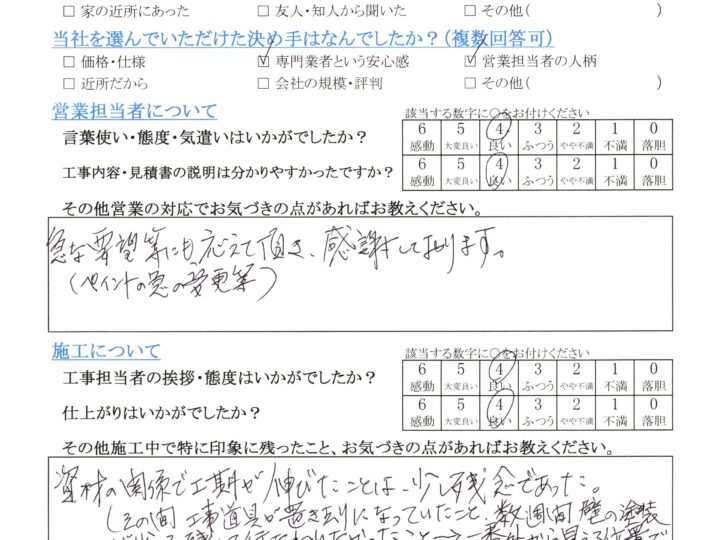 □ 家の近所にあった □ 友人・知人から聞いた □ その他( )
当社を選んでいただけた決め手はなんでしたか？(複数回答可)
□ 価格・仕様 ☑ 専門業者という安心感 ☑ 営業担当者の人柄
□ 近所だから □ 会社の規模・評判 □ その他( )
営業担当者について 該当する数字に○をお付けください
言葉使い・態度・気遣いはいかがでしたか？ 6 5 4 3 2 1 0
感動 大変良い 良い ふつう やや不満 不満 落胆
工事内容・見積書の説明は分かりやすかったですか？ 6 5 4 3 2 1 0
感動 大変良い 良い ふつう やや不満 不満 落胆
その他営業の対応でお気づきの点があればお教えください。
急な要望等にも応えて頂き、感謝しております。
(ペイントの急の変更等)
施工について 該当する数字に○をお付けください
工事担当者の挨拶・態度はいかがでしたか？ 6 5 4 3 2 1 0
感動 大変良い 良い ふつう やや不満 不満 落胆
仕上がりはいかがでしたか？ 6 5 4 3 2 1 0
感動 大変良い 良い ふつう やや不満 不満 落胆
その他施工中で特に印象に残ったこと、お気づきの点があればお教えください。
資材の関係で工期が伸びたことは、少し残念であった。
(その間 工事道具が置き去りになっていたこと、数週間 壁の塗装